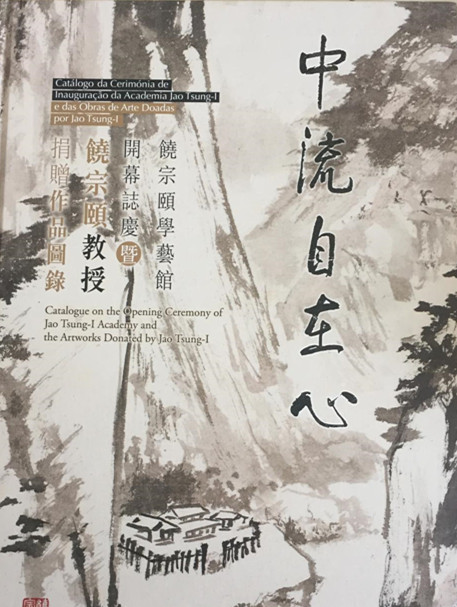 中流自在心
Catálogo da Cerimónia de
Inauguração da Academia Jao Tsung-I
e das Obras de Arte Doadas
por Jao Tsung-I
饒宗頤學藝館
開幕誌慶暨
饒宗頤教授
捐贈作品圖錄
Catalogue on the Opening Ceremony of
Jao Tsung-I Academy and
the Artworks Donated by Jao Tsung-I